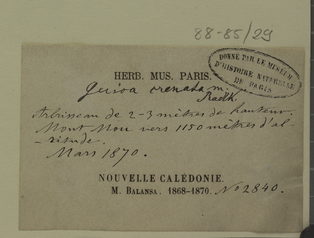 88-85/29
DONNÉ PAR LE MUSÉUM
D'HISTOIRE NATURELLE
DE PARIS
HERB. MUS. PARIS.
Guioa crenata m
Radlk.
Arbrisseau de 2-3 mètres de hauteur.
Mont Mou vers 1150 mètres d'al-
titude.
Mars 1870.
NOUVELLE CALÉDONIE.
M. Balansa. 1868-1870. No 2840.